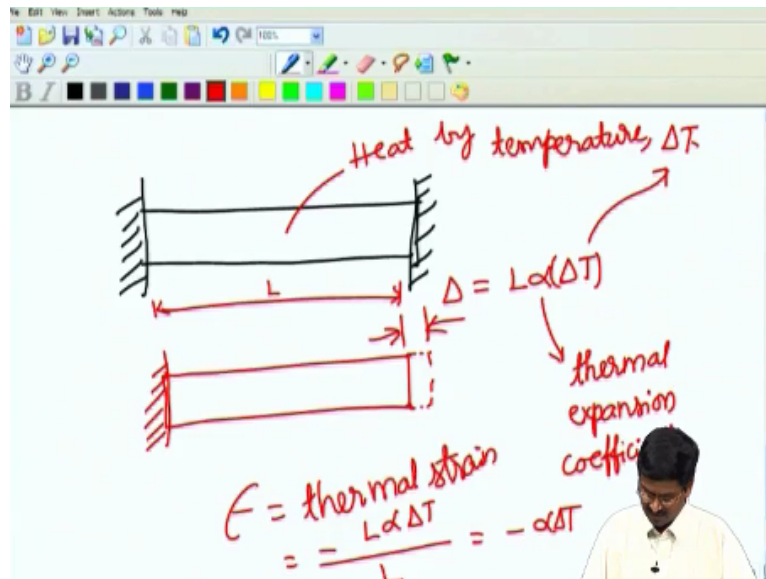 File Edit View Insert Actions Tools Help
100%
B I
Heat by temperature, ΔT
L
Δ = Lα(ΔT)
thermal
expansion
ϵ = thermal strain
= - LαΔT / L = - αΔT